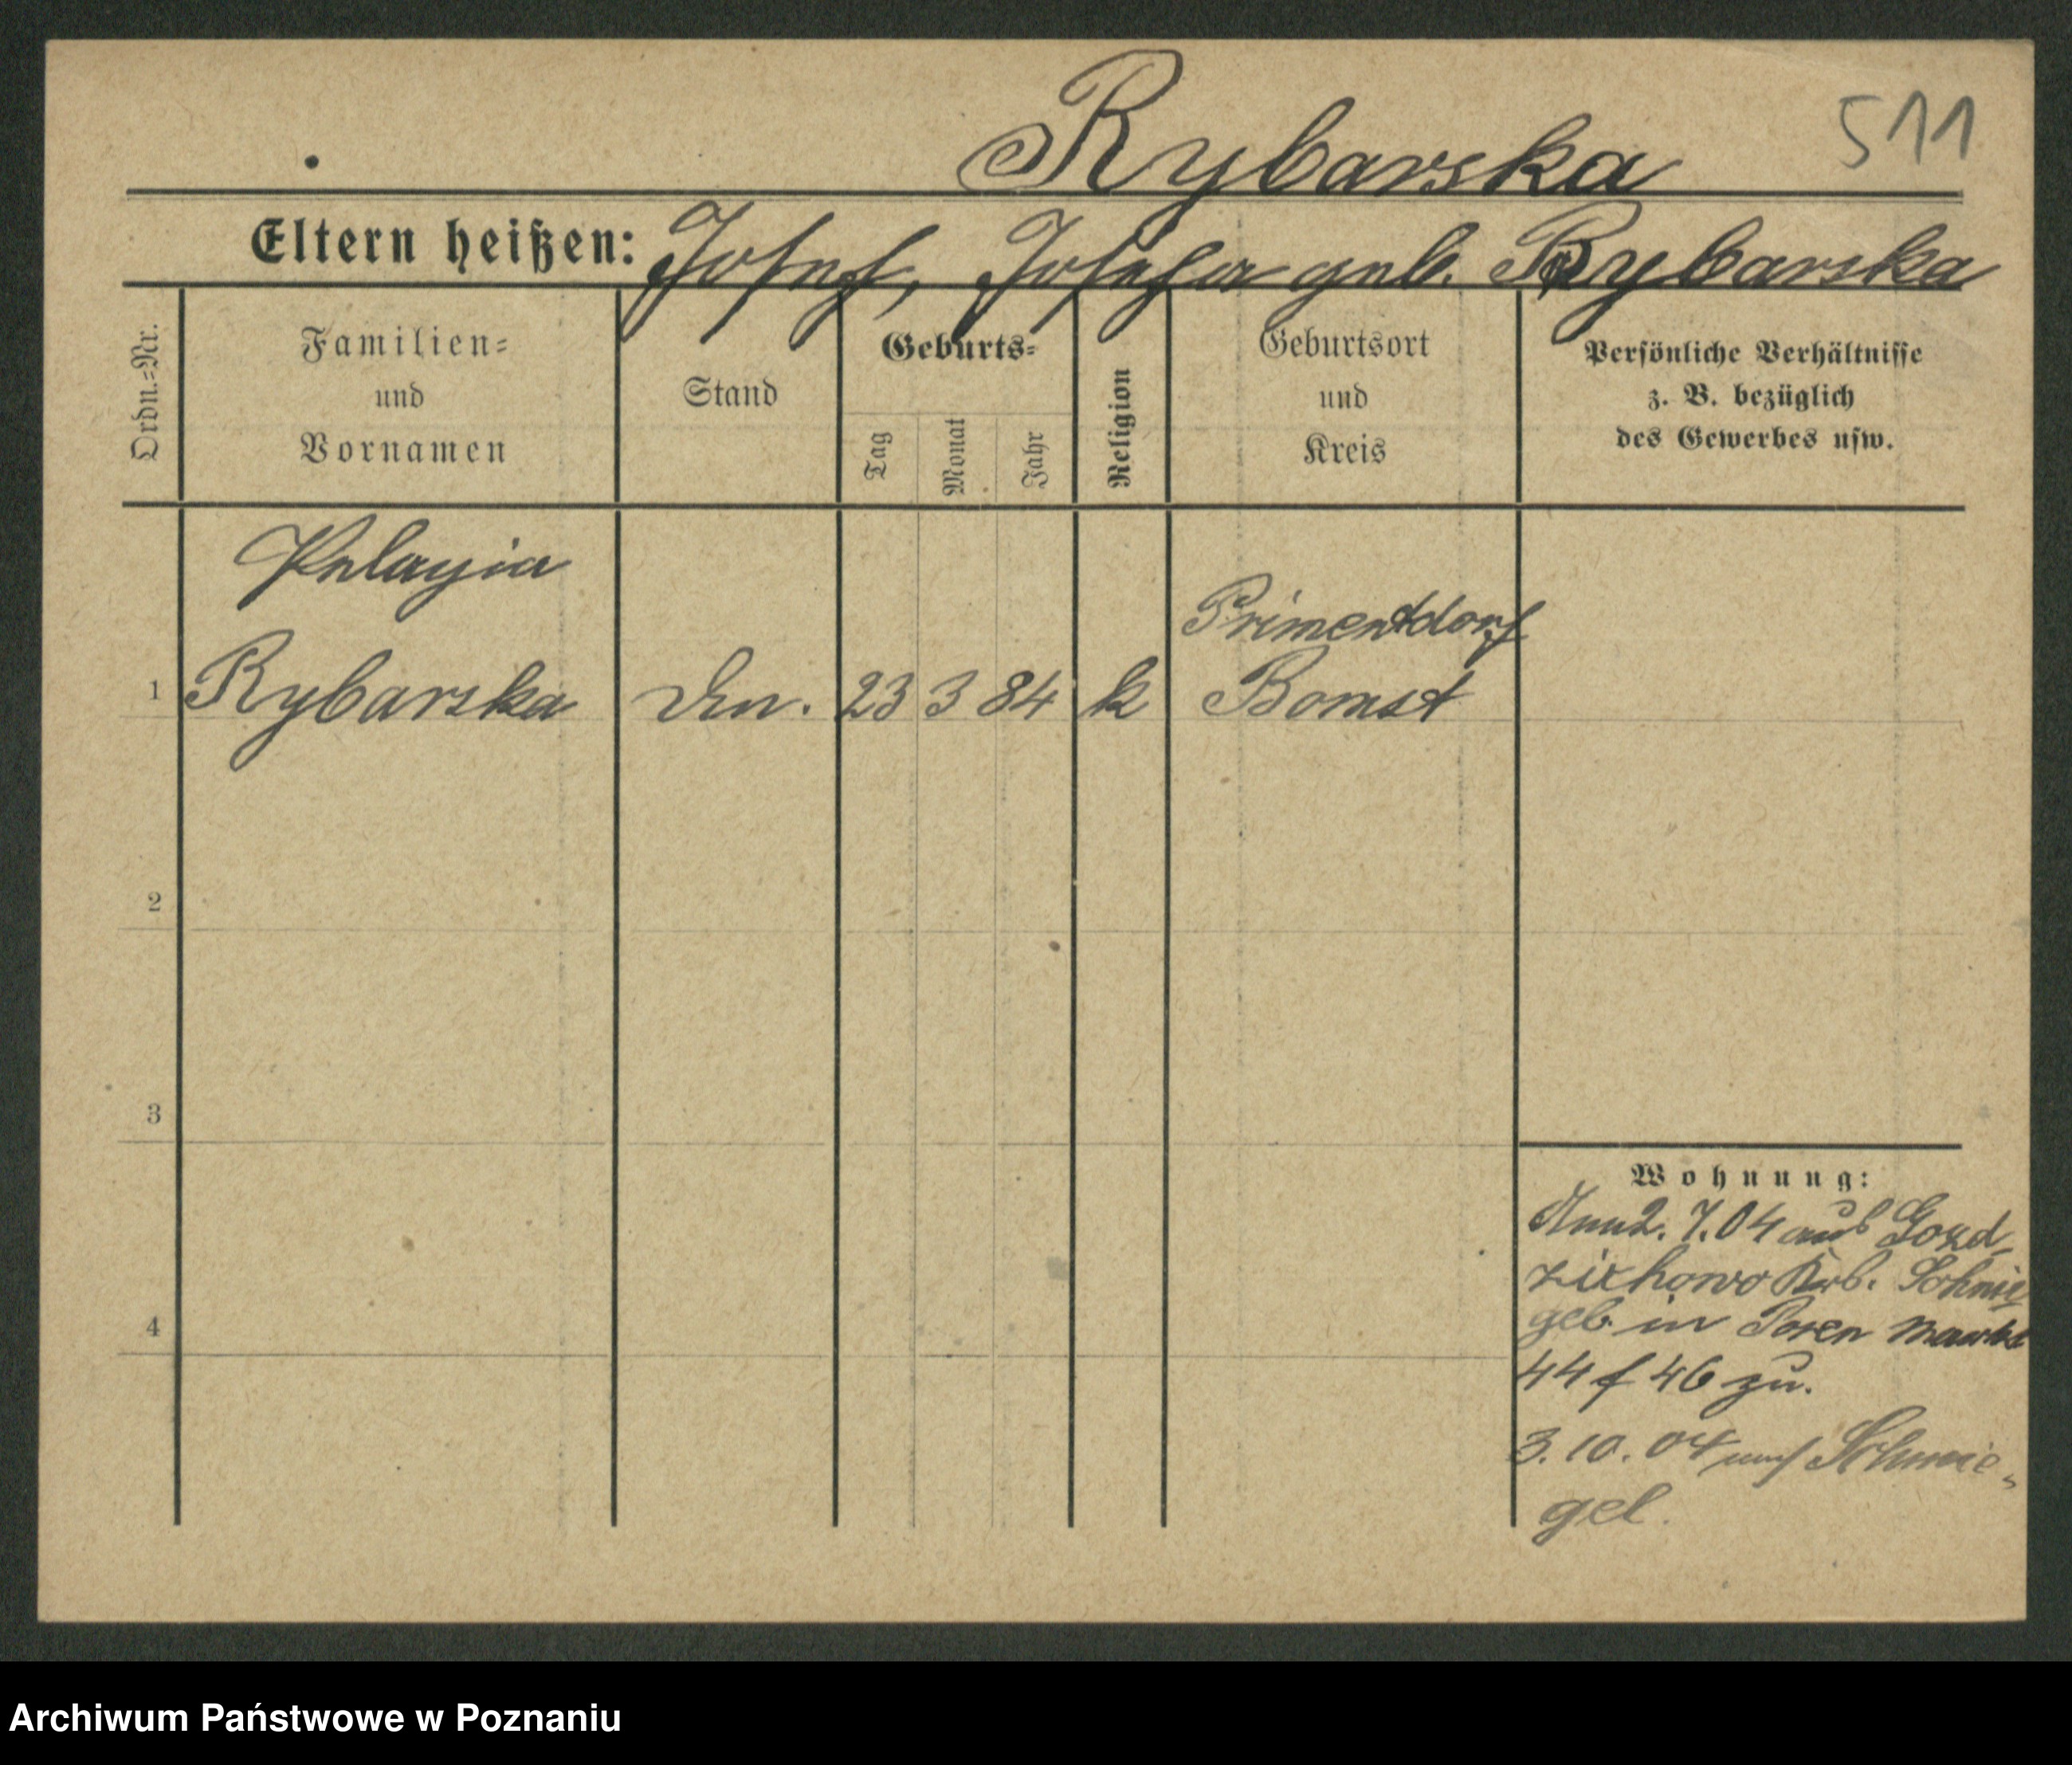 511
Rybarska
Eltern heißen: Josef, Josefa geb. Rybarska
Ordn.=Nr.
Familien=
und
Vornamen
Stand
Geburts=
Tag
Monat
Jahr
Religion
Geburtsort
und
Kreis
Persönliche Verhältnisse
z. B. bezüglich
des Gewerbes usw.
Pelagia
Primentdorf
1 Rybarska 23 3 84 k Bomst
2
3
4
Wohnung:
2. 7. 04 aus Gozd-
Schmie
gel in Posen Markt
46 zu.
3. 10. 04 nach Schmie-
gel.
Archiwum Państwowe w Poznaniu